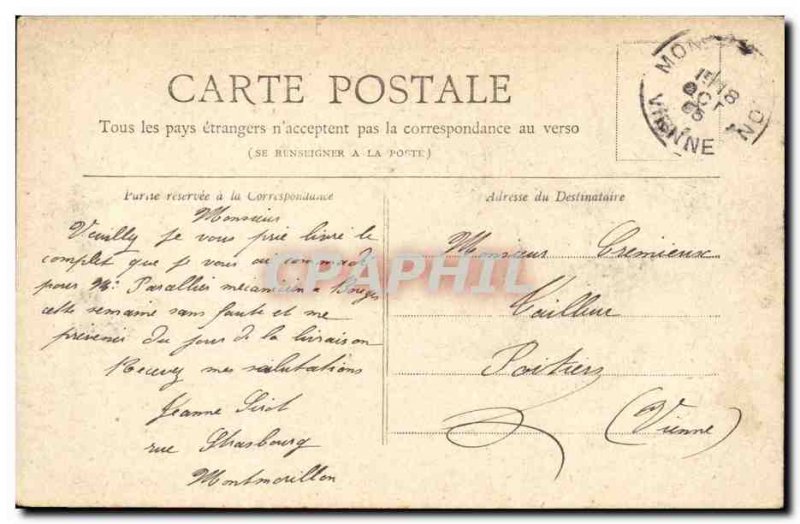 CARTE POSTALE
Tous les pays étrangers n'acceptent pas la correspondance au verso
(SE RENSEIGNER A LA POSTE)
Partie réservée à la Correspondance
Adresse du Destinataire
Monsieur
Veuilly je vous prie livré le
complet que je vous ai commadé
pour Mr Parallier mecanicien a
cette semaine sans faute et me
prevenir du jour de la livraison
Recevez mes salutations
Jeanne
rue Strasbourg
Montmorillon
Monsieur Cremieux
Tailleur
Poitiers
(Vienne)
CPAPHIL
MON
ON
15 18
OCT
05
VIENNE